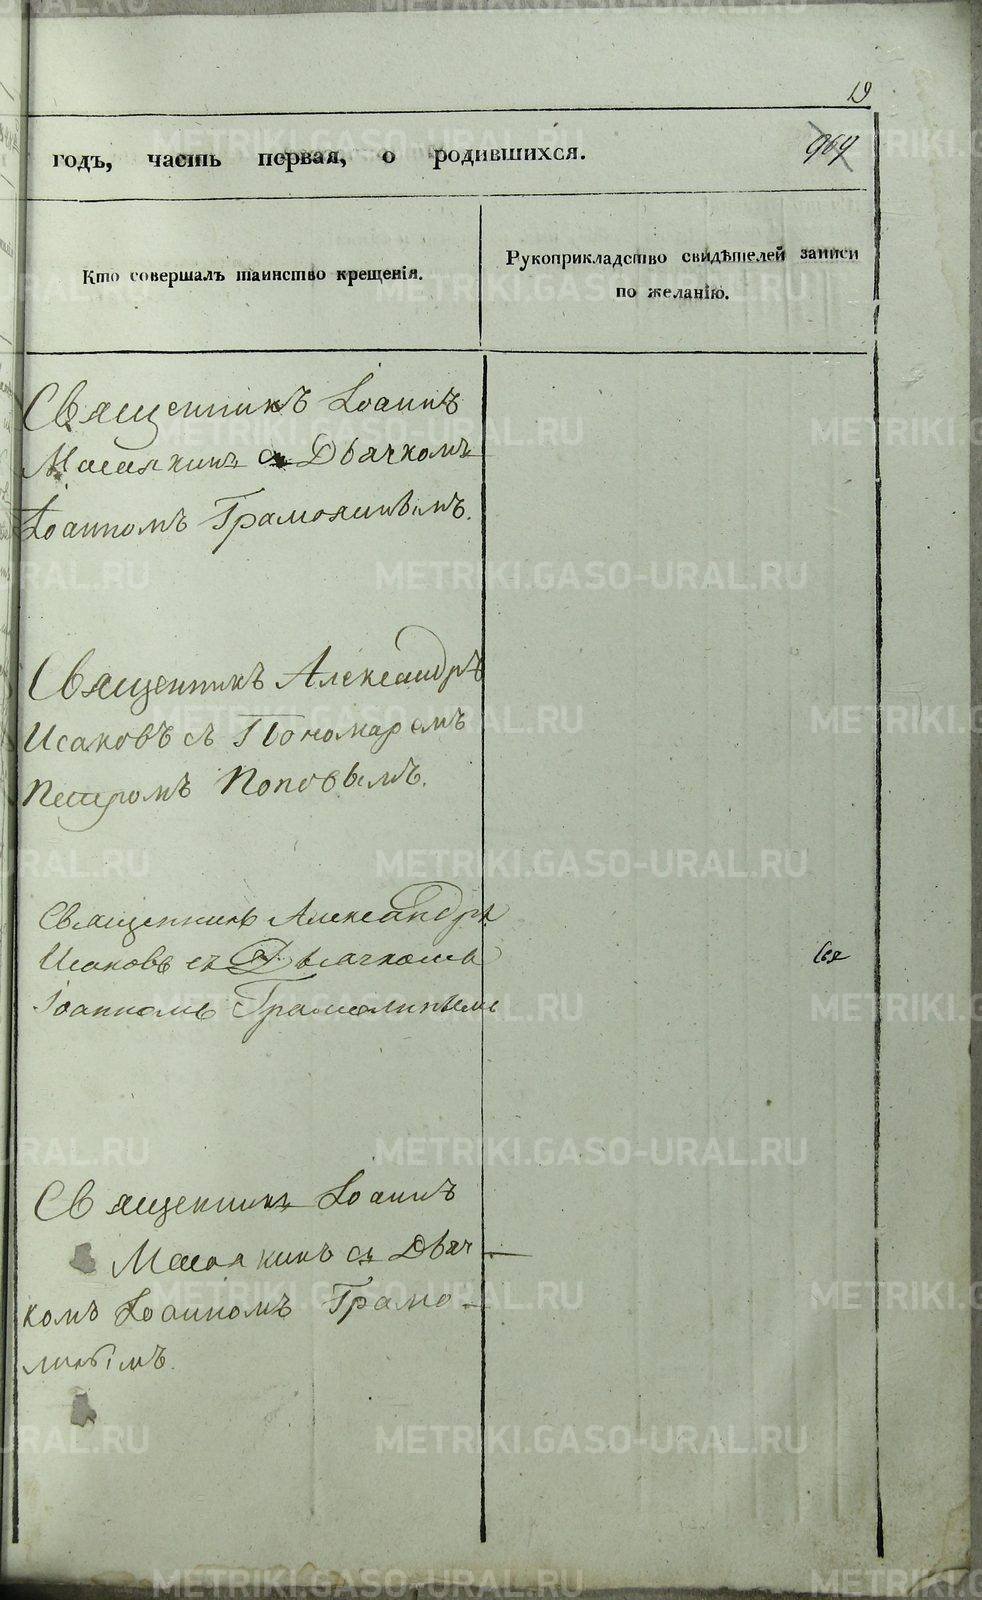 19
годъ, часть первая, о родившихся.
969
Кто совершалъ таинство крещенія.
Рукоприкладство свидѣтелей записи
по желанію.
Священникъ Іоаннъ
съ Дьячкомъ
Іоанномъ
Священникъ Александръ
Исаковъ съ Пономаремъ
Петромъ Поповымъ.
Священникъ Александръ
Исаковъ съ Дьячкомъ
Іоанномъ
Священникъ Іоаннъ
съ Дьяч-
комъ Іоанномъ
METRIKI.GASO-URAL.RU